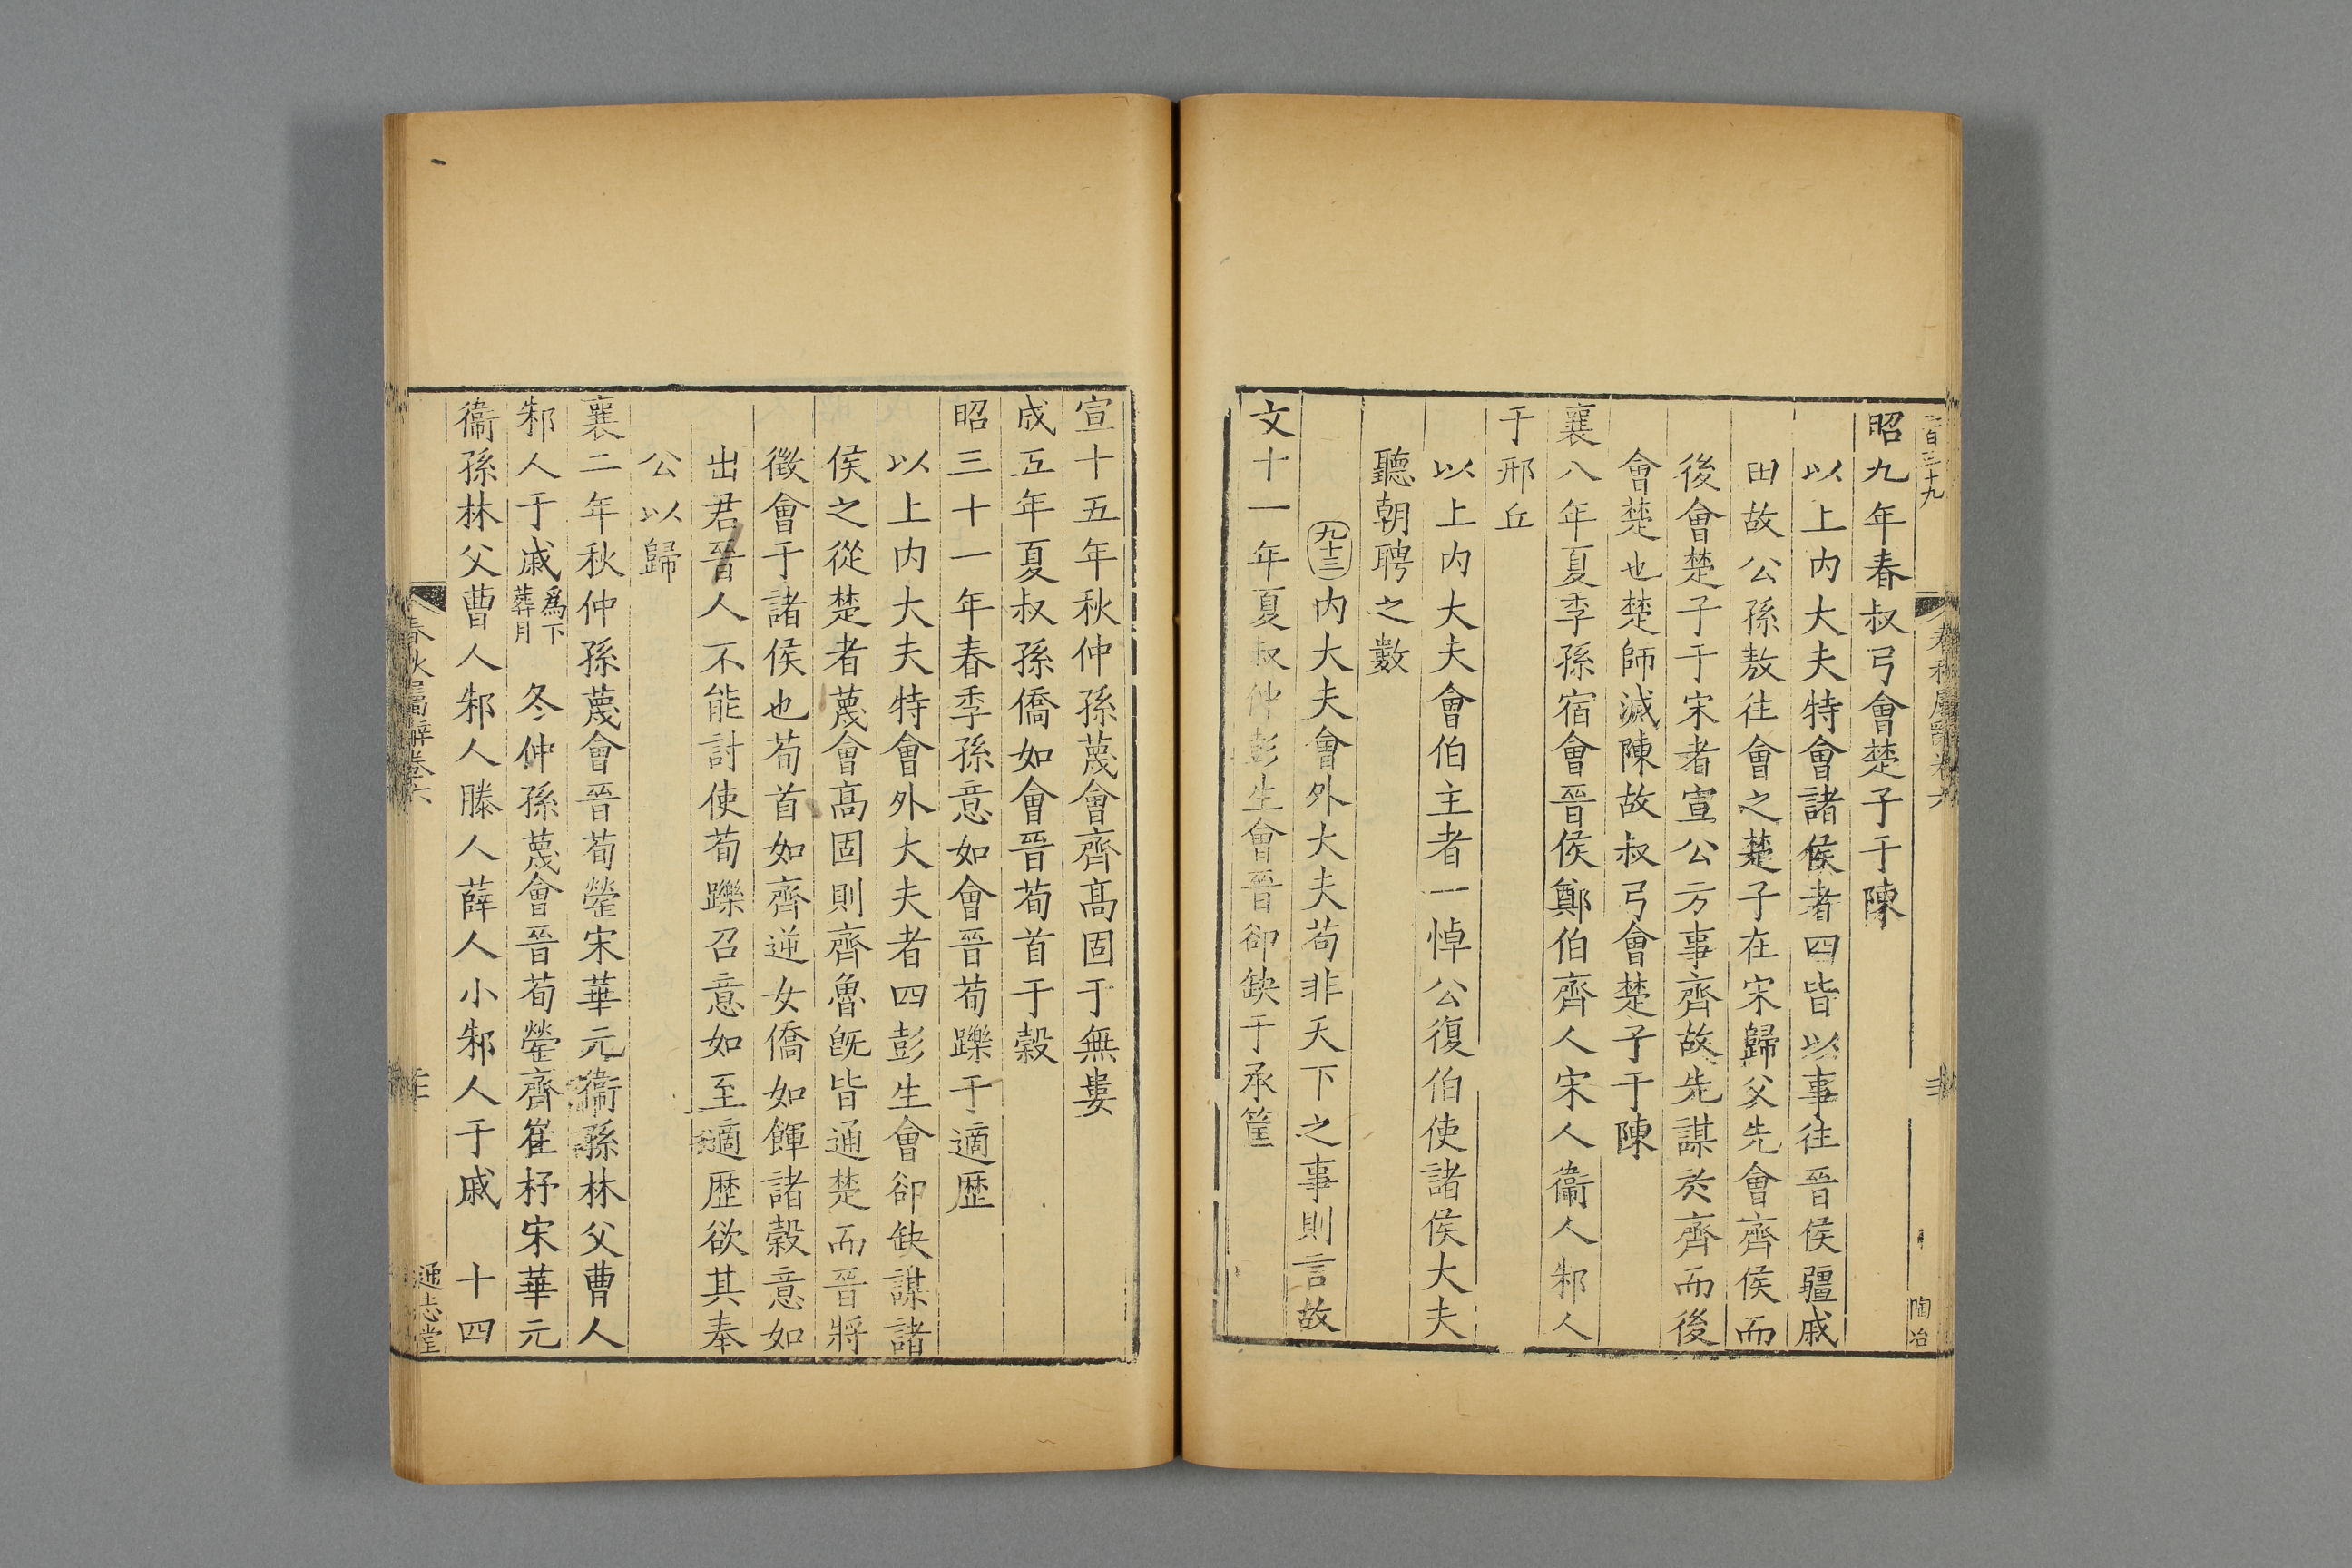 昭九年春叔弓會楚子于陳
以上内大夫特會諸侯者四皆以事往晉侯疆戚
田故公孫敖往會之楚子在宋歸父先會齊侯而
後會楚子于宋者宣公方事齊故先謀於齊而後
會楚也楚師滅陳故叔弓會楚子于陳
襄八年夏季孫宿會晉侯鄭伯齊人宋人衞人邾人
于邢丘
以上内大夫會伯主者一悼公復伯使諸侯大夫
聽朝聘之數
九十三内大夫會外大夫苟非天下之事則言故
文十一年夏叔仲彭生會晉郤缺于承筐
陶冶
宣十五年秋仲孫蔑會齊高固于無婁
成五年夏叔孫僑如會晉荀首于穀
昭三十一年春季孫意如會晉荀躒于適歷
以上内大夫特會外大夫者四彭生會郤缺謀諸
侯之從楚者蔑會高固則齊魯旣皆通楚而晉將
徵會于諸侯也荀首如齊逆女僑如餫諸穀意如
出君晉人不能討使荀躒召意如至適歷欲其奉
公以歸
襄二年秋仲孫蔑會晉荀罃宋華元衞孫林父曹人
邾人于戚爲下葬月 冬仲孫蔑會晉荀罃齊崔杼宋華元
衞孫林父曹人邾人滕人薛人小邾人于戚 十四
春秋屬辭卷六
通志堂